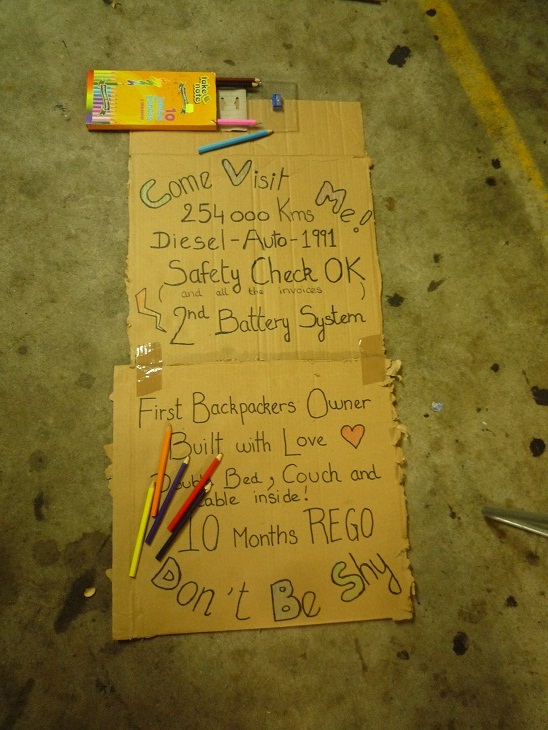 take note
10
Come Visit
Me!
254 000 Kms
Diesel-Auto-1991
Safety Check OK
(and all the invoices)
2nd Battery System
First Backpackers Owner
Built with Love
Double Bed, Couch and
table inside!
10 Months REGO
Don't Be Shy